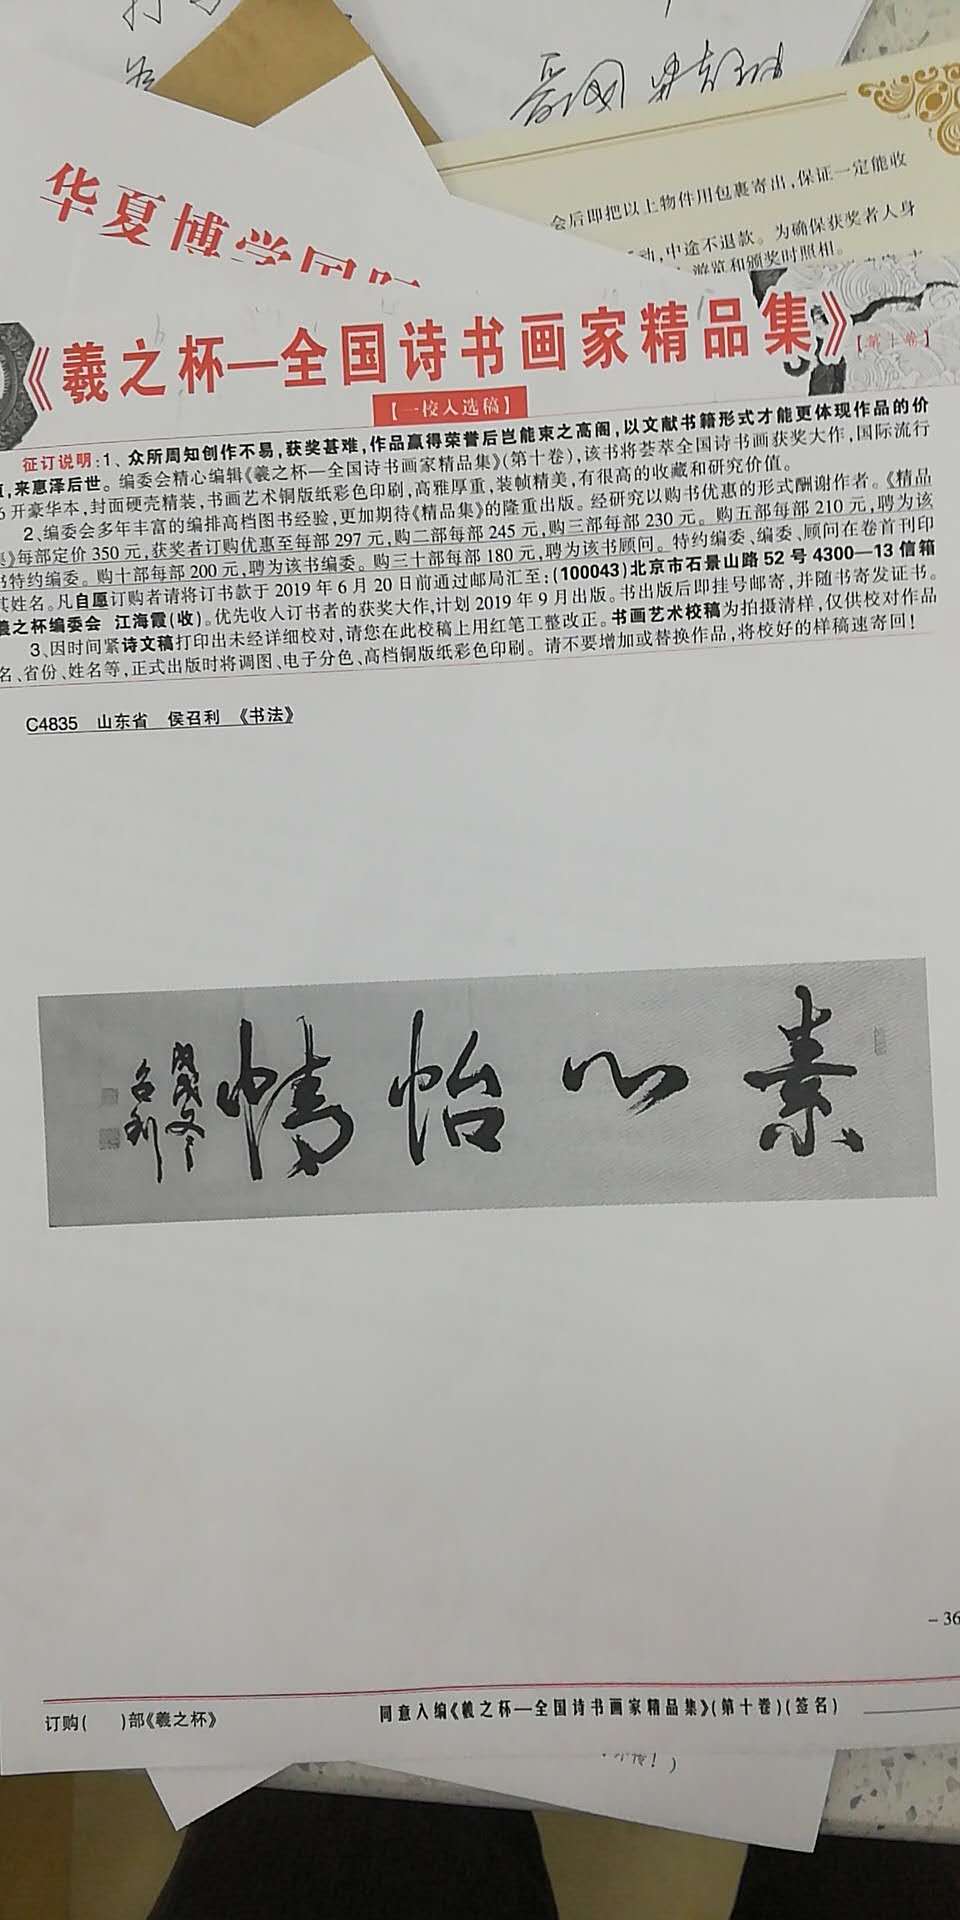 晋网
会后即把以上物件用包裹寄出，保证一定能收
动，中途不退款。为确保获奖者人身
游览和颁奖时照相。
华夏博学国际
《羲之杯—全国诗书画家精品集》
【第十卷】
【一校入选稿】
征订说明：1、众所周知创作不易，获奖甚难，作品赢得荣誉后岂能束之高阁，以文献书籍形式才能更体现作品的价
值，来惠泽后世。编委会精心编辑《羲之杯—全国诗书画家精品集》（第十卷），该书将荟萃全国诗书画获奖大作，国际流行
6开豪华本，封面硬壳精装，书画艺术铜版纸彩色印刷，高雅厚重，装帧精美，有很高的收藏和研究价值。
2、编委会多年丰富的编排高档图书经验，更加期待《精品集》的隆重出版。经研究以购书优惠的形式酬谢作者。《精品
集》每部定价350元，获奖者订购优惠至每部297元，购二部每部245元，购三部每部230元。购五部每部210元，聘为该
书特约编委。购十部每部200元，聘为该书编委。购三十部每部180元，聘为该书顾问。特约编委、编委、顾问在卷首刊印
其姓名。凡自愿订购者请将订书款于2019年6月20日前通过邮局汇至：(100043)北京市石景山路52号4300—13信箱
羲之杯编委会 江海霞（收）。优先收入订书者的获奖大作，计划2019年9月出版。书出版后即挂号邮寄，并随书寄发证书。
3、因时间紧诗文稿打印出未经详细校对，请您在此校稿上用红笔工整改正。书画艺术校稿为拍摄清样，仅供校对作品
名、省份、姓名等，正式出版时将调图、电子分色、高档铜版纸彩色印刷。请不要增加或替换作品，将校好的样稿速寄回！
C4835 山东省 侯召利 《书法》
素心怡情
戊戌冬
召利
－36
订购( )部《羲之杯》
同意入编《羲之杯—全国诗书画家精品集》(第十卷)(签名)